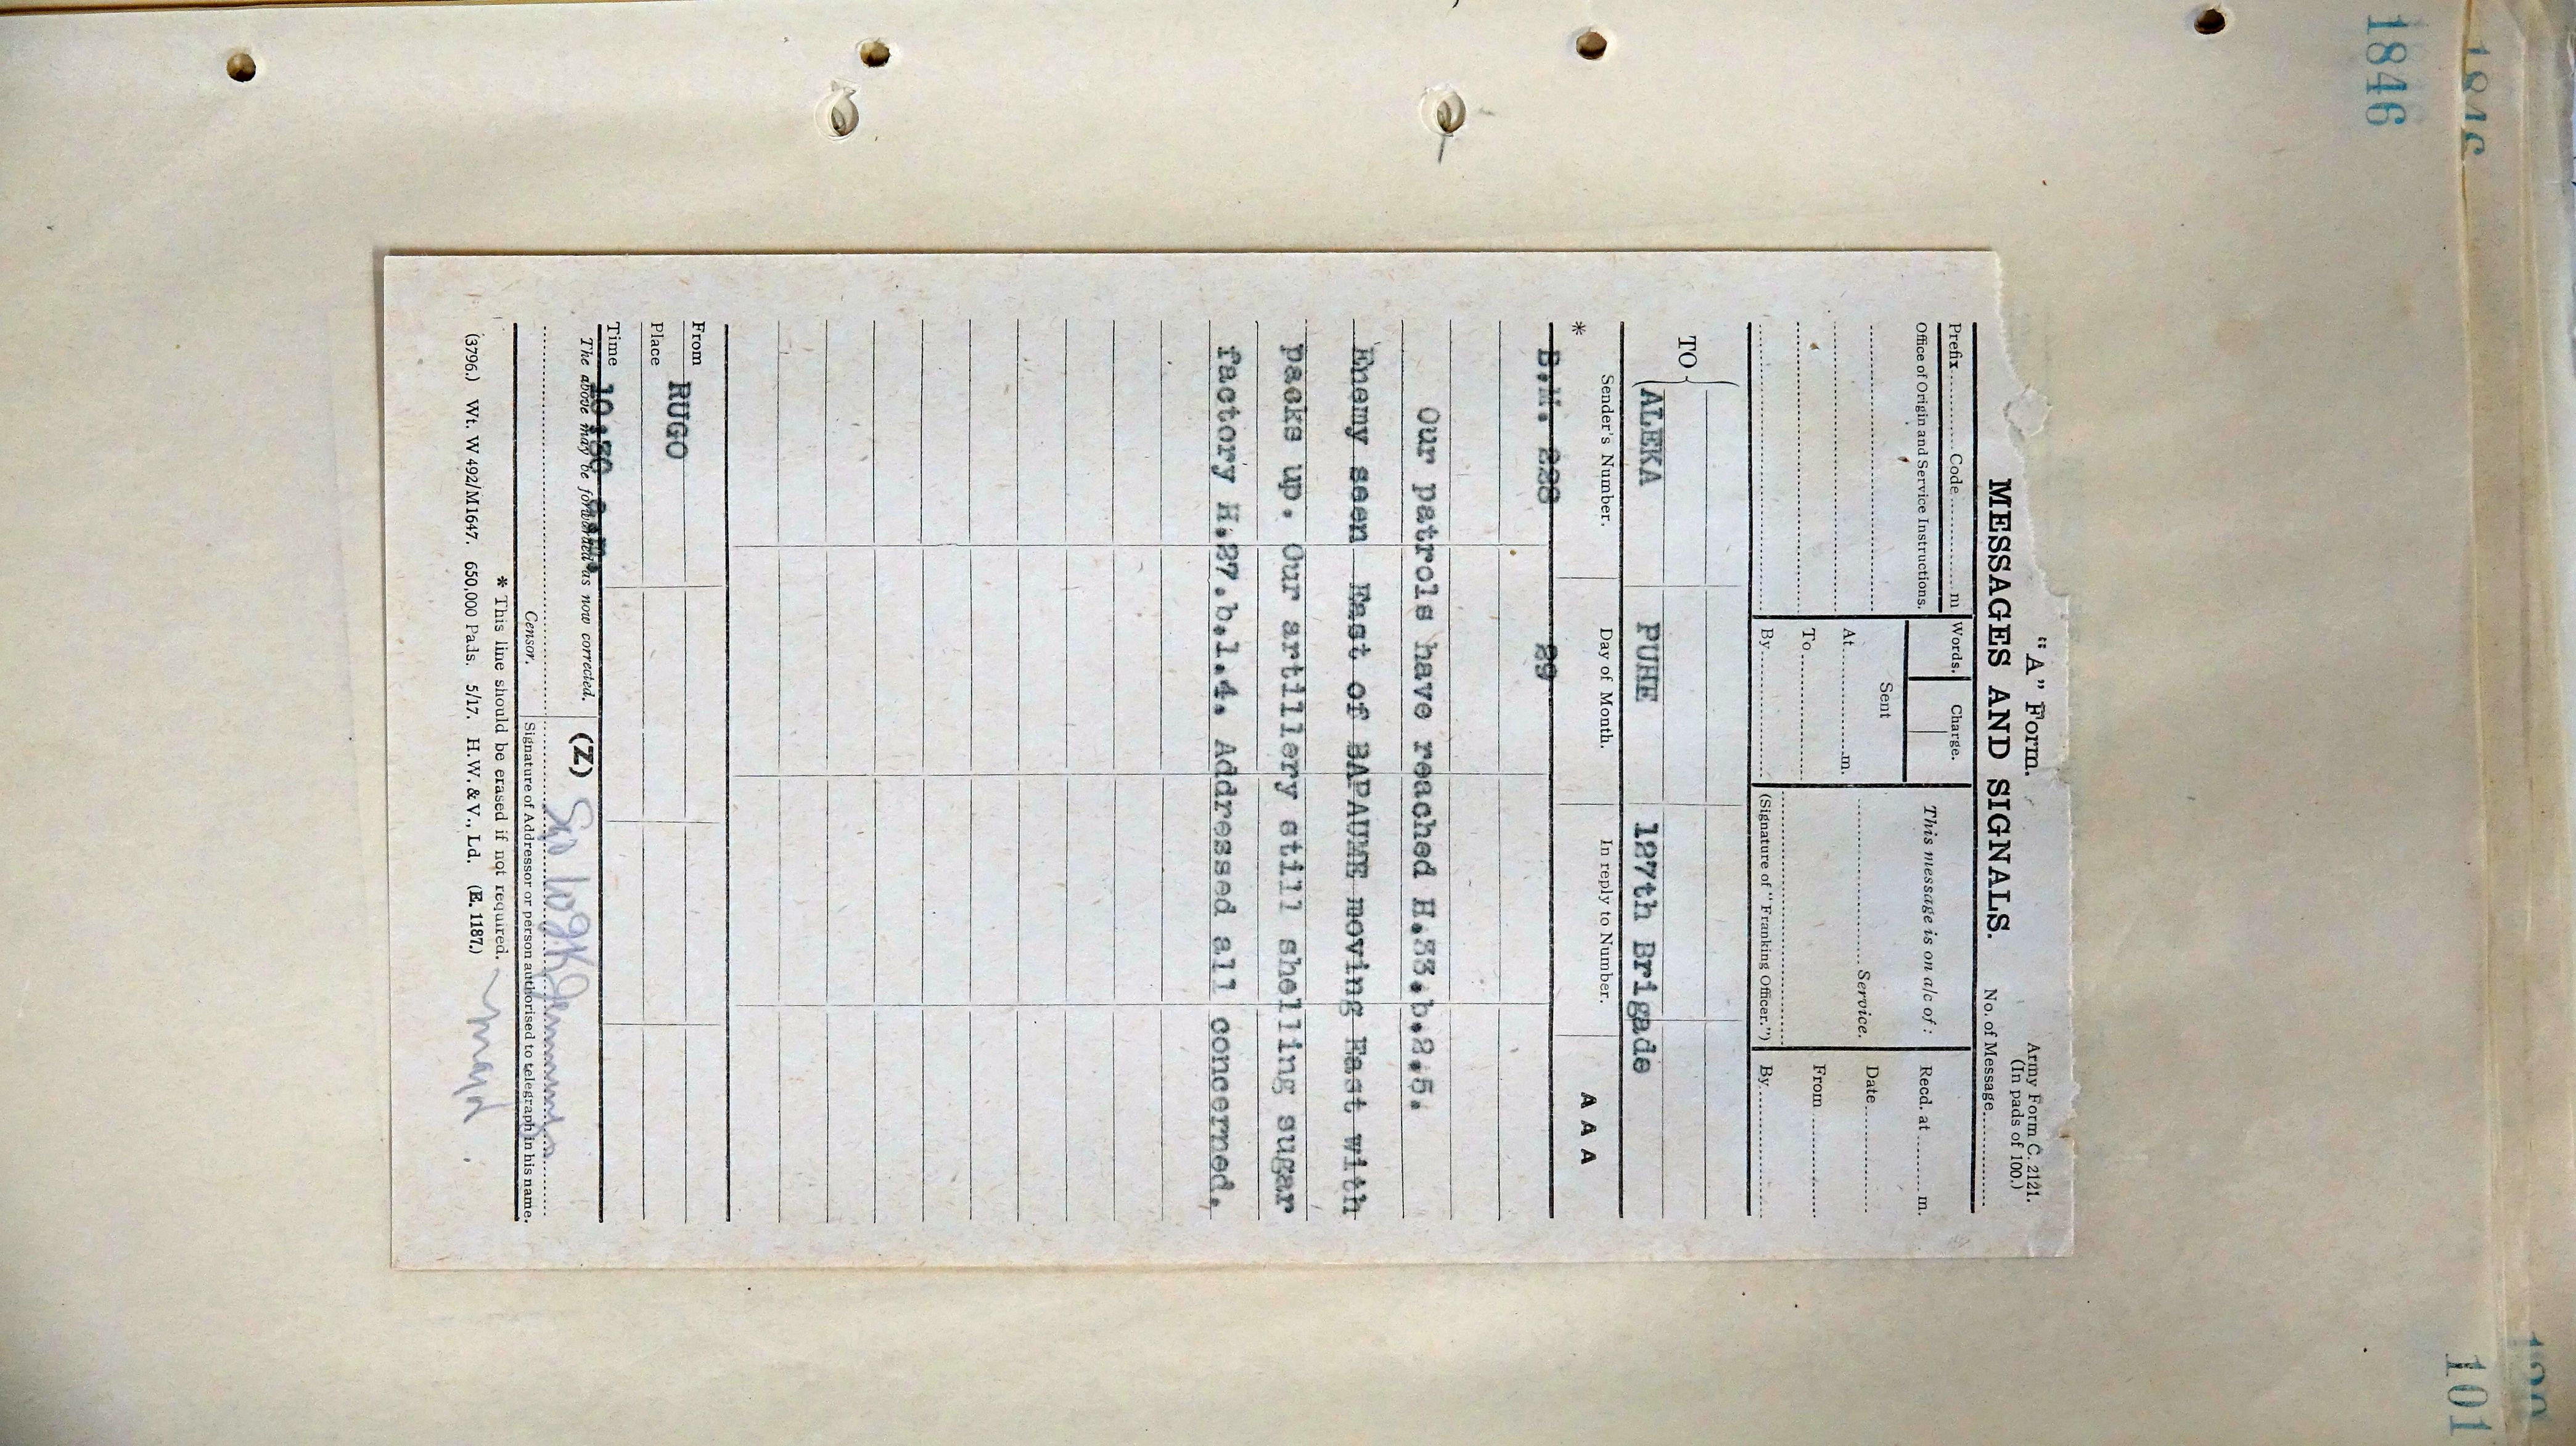 1846
1846
101
"A" Form.
Army Form C. 2121.
(In pads of 100.)
MESSAGES AND SIGNALS.
No. of Message
Prefix Code m
Words.
Charge.
This message is on a/c of :
Recd. at m.
Office of Origin and Service Instructions.
Sent
Service.
Date
At m.
From
To
By
(Signature of "Franking Officer.")
By
TO
ALEKA PUHE 127th Brigade
* Sender's Number.
Day of Month.
In reply to Number.
A A A
B.M. 228 29
Our patrols have reached H.33.b.2.5.
Enemy seen East of BAPAUME moving East with
packs up. Our artillery still shelling sugar
factory H.27.b.1.4. Addressed all concerned.
From RUGO
Place
Time 10:30 a.m.
The above may be forwarded as now corrected.
(Z)
Censor.
Signature of Addressor or person authorised to telegraph in his name.
* This line should be erased if not required.
(3796.) Wt. W 492/M1647. 650,000 Pads. 5/17. H.W. & V., Ld. (E. 1187.)
Major